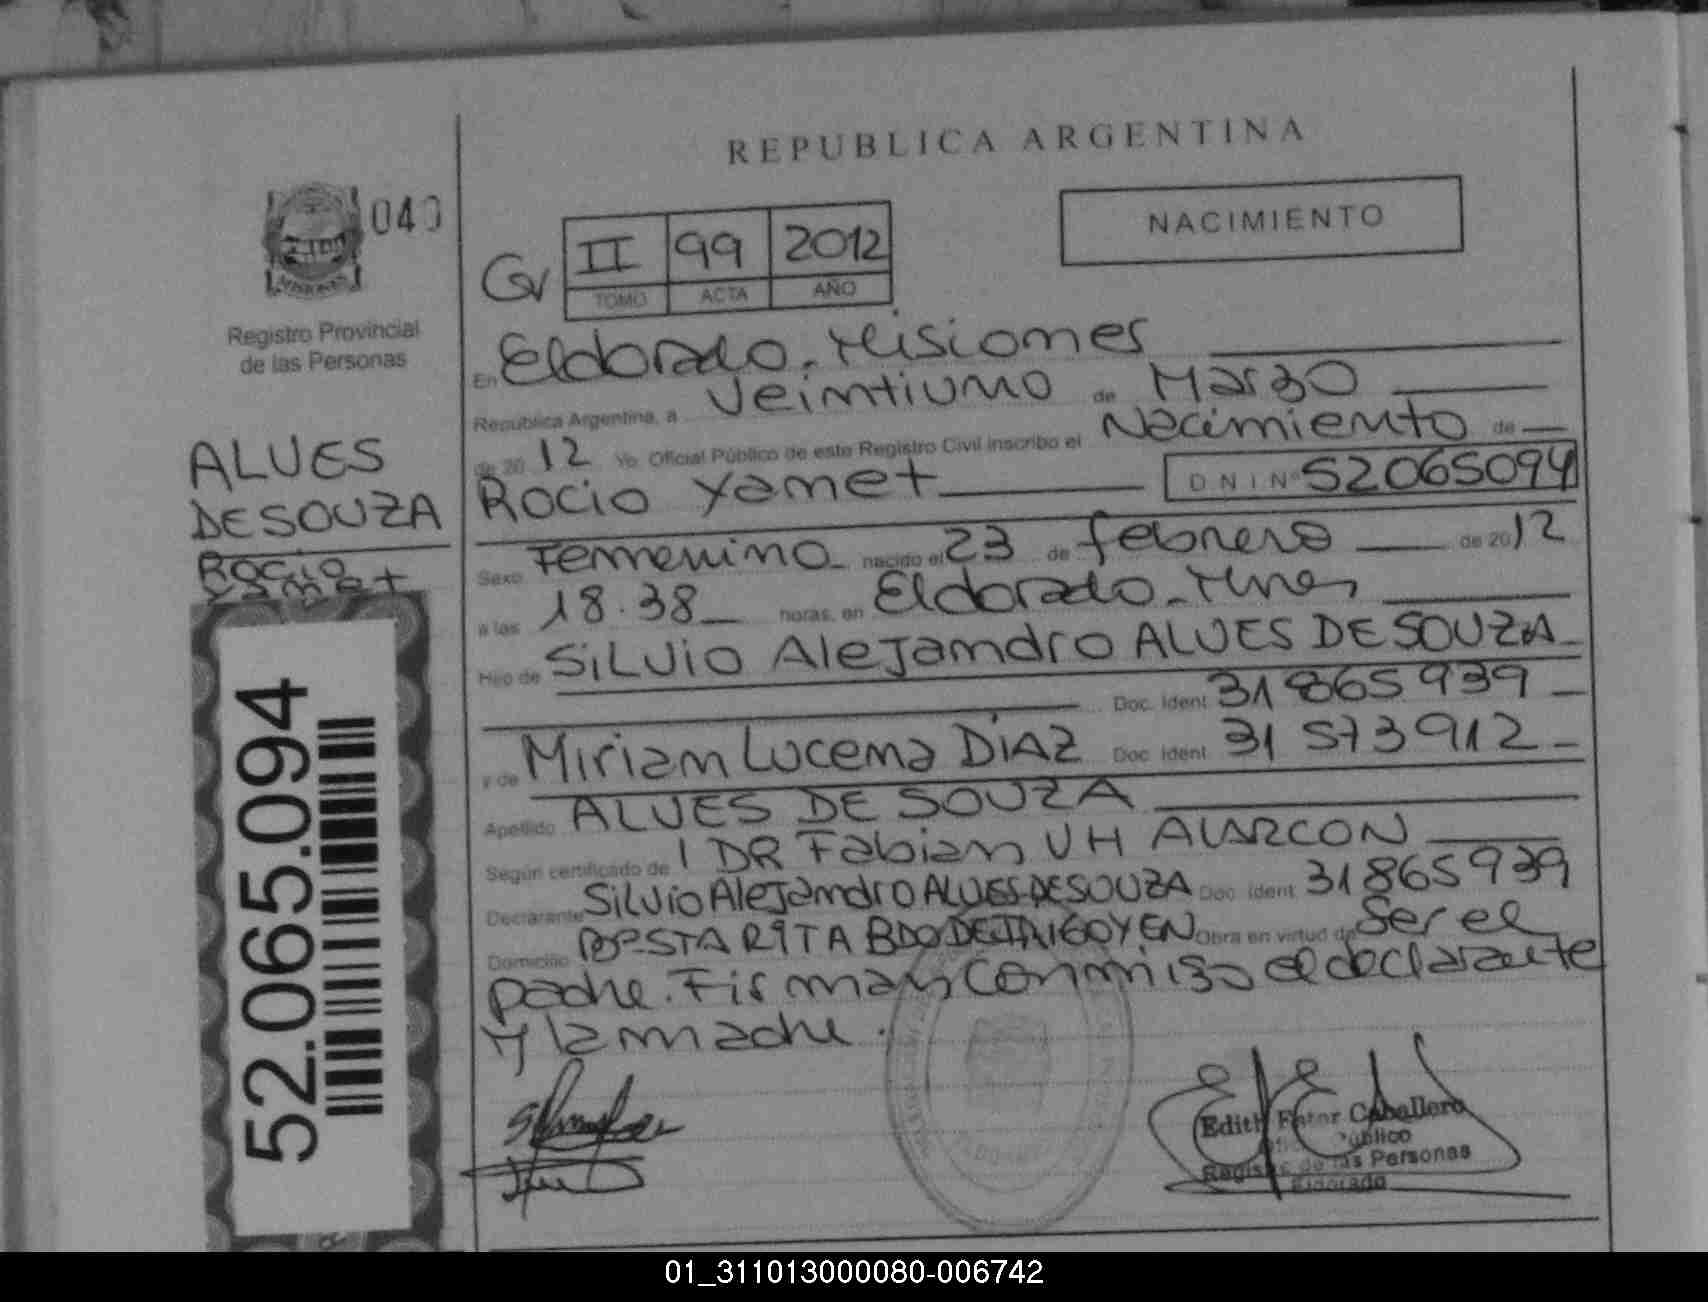 REPUBLICA ARGENTINA
NACIMIENTO
040
Registro Provincial
de las Personas
II 99 2012
TOMO ACTA AÑO
En Eldorado. Misiones
República Argentina, a Veintiuno de Marzo
de 20 12 Yo Oficial Público de este Registro Civil inscribo el Nacimiento de
Rocio Yamet D N I Nº 52065094
ALVES
DE SOUZA
Rocio
Yamet
Sexo Femenino nacido el 23 de febrero de 20 12
a las 18.38 horas, en Eldorado - Mnes
Hijo de SiLVio Alejandro ALVES DE SOUZA
Doc. Ident 31 865 939
y de Miriam Lucena DIAZ Doc. Ident 31 573 912
Apellido ALVES DE SOUZA
Según certificado de DR Fabian VH ALARCON
Declarante SiLVio Alejandro ALVES DE SOUZA Doc. Ident 31 865 939
Domicilio STA RITA BDO DE IRIGOYEN Obra en virtud de Ser el
padre. Firman conmigo el declarante
y la madre.
52.065.094
Edith Ester Caballero
Oficial Público
Registro de las Personas
Eldorado
01_311013000080-006742